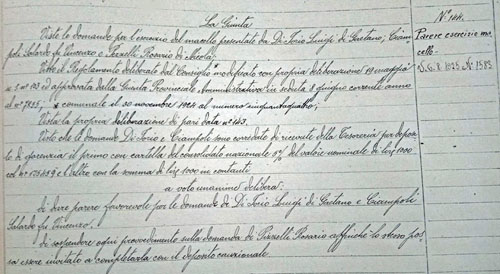 La Giunta
N° 144.
Viste le domande per l'esercizio del macello presentate da Di Iorio Luigi di Gaetano; Ciam-
poli Salardo fu Vincenzo e Pizzelli Rosario di Nicola;
Parere esercizio ma-
cello.
Visto il Regolamento deliberato dal Consiglio modificato con propria deliberazione 19 maggio
n° 103 ed approvata dalla Giunta Provinciale Amministrativa in seduta 8 giugno corrente anno
al n° 7835, e comunale il 30 novembre 1924 al numero cinquantaquattro;
Vista la propria deliberazione di pari data n° 143.
Visto che le domande Di Iorio e Ciampoli sono corredate di ricevute della Tesoreria pel deposi-
to di garenzia il primo con cartella del consolidato nazionale 5% del valore nominale di lire 1000
col n° e l'altro con la somma di lire 1000 in contanti
a voto unanime delibera:
di dare parere favorevole per le domande di Di Iorio Luigi di Gaetano e Ciampoli
Salardo fu Vincenzo,
di sospendere ogni provvedimento sulla domanda di Pizzelli Rosario affinché lo stesso pos-
sa essere invitato a completarla con il deposito cauzionale.